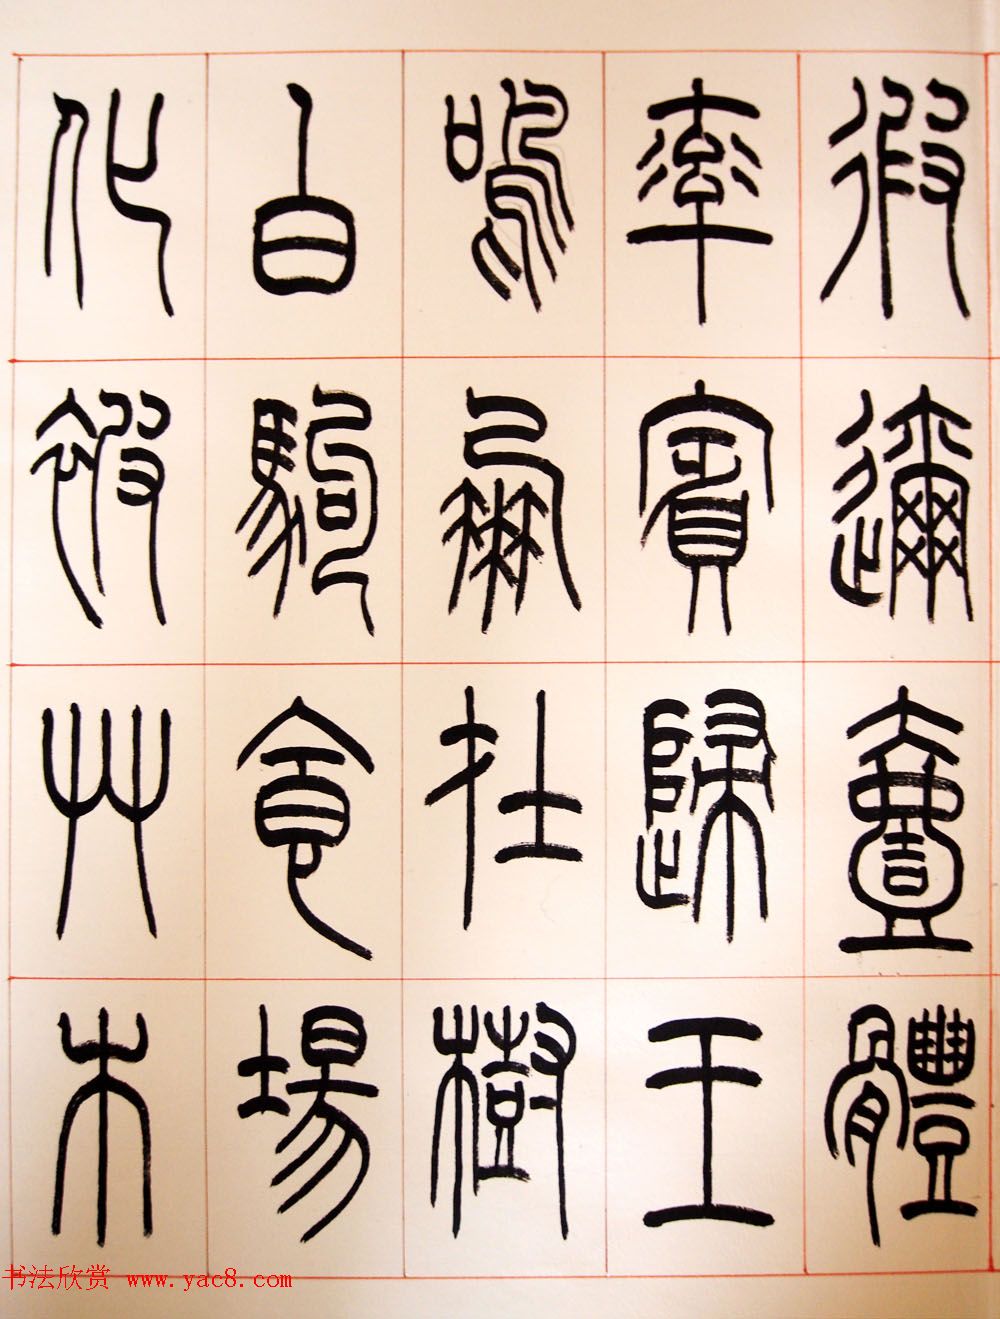 遐邇壹體
率賓歸王
鳴鳳在樹
白駒食場
化被草木
书法欣赏 www.yac8.com